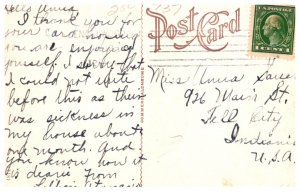 Hello Anna
I thank you for
your card hoping
you are enjoying
yourself. I sorry that
I could not write
before this as there
was sickness in
my house about
one month. And
you know how it
is
from
POST CARD
1 CENT 1
Miss Anna
926 Main St.
Tell City
Indiana
U.S.A.